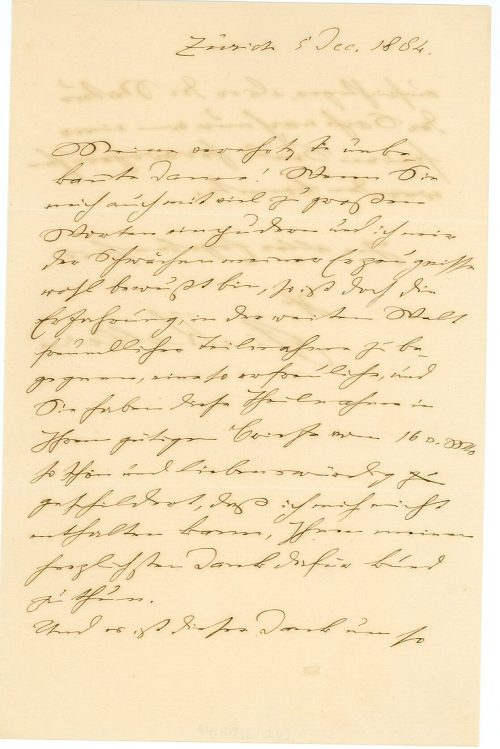 Zürich 5 Dec. 1884.
Meine verehrteste unbe-
kannte Dame! Wenn Sie
mich auch mit viel zu großen
Worten und ich mir
der Schwächen meiner Erzeugnisse
wohl bewußt bin, so ist doch die
Erfahrung, in der weiten Welt
freundlicher Teilnahme zu be-
gegnen, eine so erfreuliche, und
Sie haben diese Theilnahme in
Ihrem gütigen Briefe vom 16 v. Mts
so schön und liebenswürdig
geschildert, daß ich mich nicht
enthalten kann, Ihnen meinen
herzlichsten Dank dafür kund
zu thun.
Und es ist dieser Dank um so